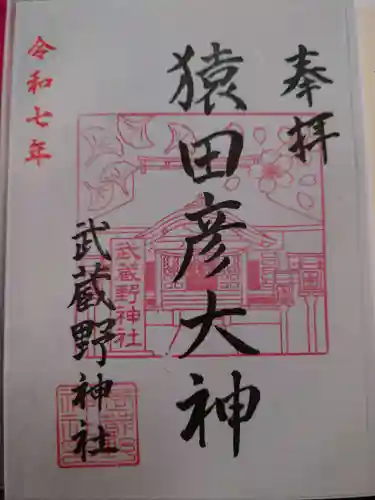 奉拝
猿田彦大神
武蔵野神社
武蔵野神社
令和七年